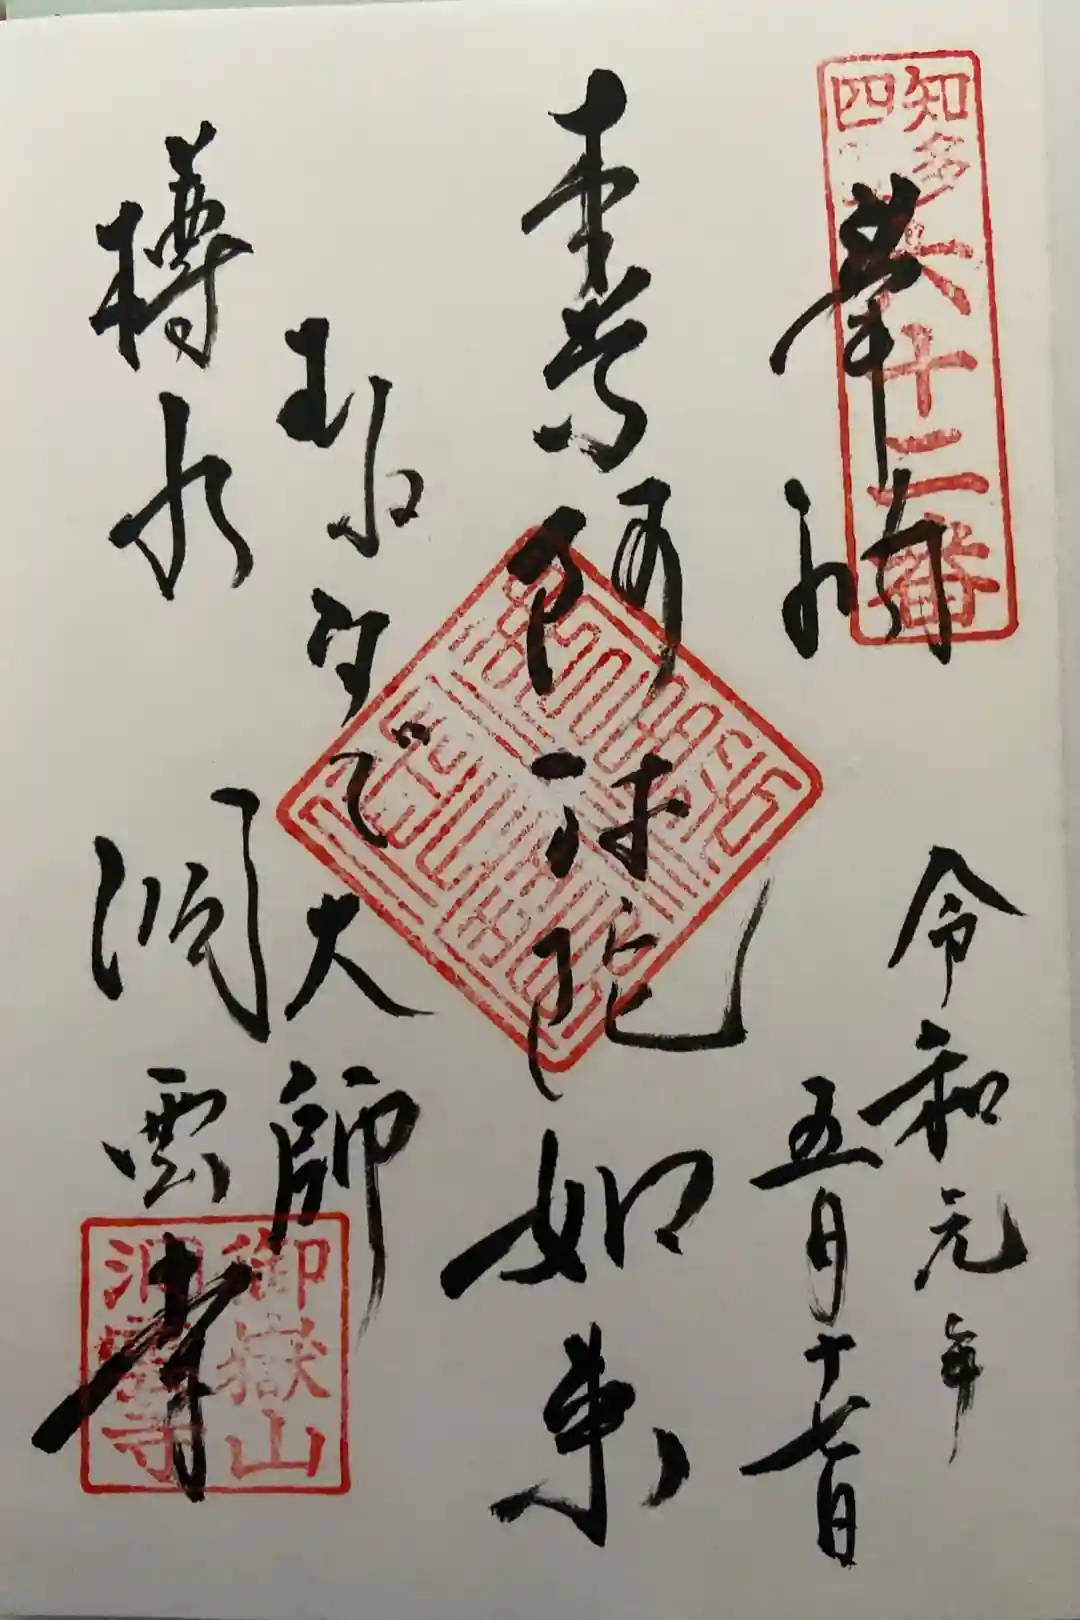 知多
四国
六十二番
奉納
令和元年
五月十七日
本尊阿弥陀如来
大師
樽水
洞雲寺
御嶽山
洞雲寺